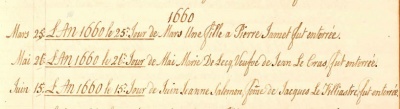 1660
Mars 25. L'AN 1660 le 25e Jour de Mars Une fille a Pierre Jamet fut enterrée.
Mai 26. L'AN 1660 le 26e Jour de Mai Marie De Lecq Veufve de Jean Le Cras, fut enterrée.
Juin 15. L'AN 1660 le 15e Jour de Juin Jeanne Salmon fame de Jacques Le Filliastre, fut enterrée.